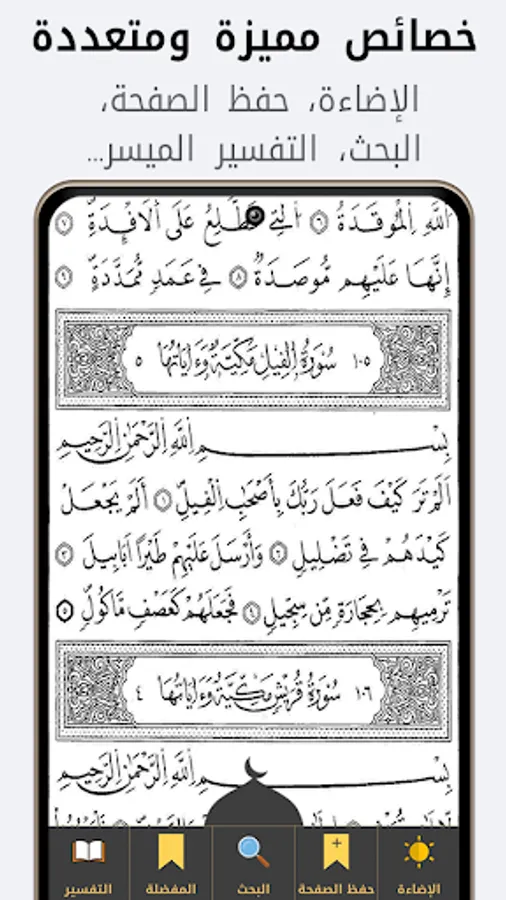 خصائص مميزة ومتعددة
الإضاءة، حفظ الصفحة،
البحث، التفسير الميسر...
ٱللَّهِ ٱلْمُوقَدَةُ ٦ ٱلَّتِي تَطَّلِعُ عَلَى ٱلْأَفْـِٔدَةِ ٧
إِنَّهَا عَلَيْهِم مُّوصَدَةٌ ٨ فِي عَمَدٍ مُّمَدَّدَةٍ ٩
١٠٥ سُورَةُ ٱلْفِيلِ مَكِّيَّةٌ وَءَايَاتُهَا ٥
بِسْمِ ٱللَّهِ ٱلرَّحْمَٰنِ ٱلرَّحِيمِ
أَلَمْ تَرَ كَيْفَ فَعَلَ رَبُّكَ بِأَصْحَٰبِ ٱلْفِيلِ ١ أَلَمْ يَجْعَلْ
كَيْدَهُمْ فِي تَضْلِيلٍ ٢ وَأَرْسَلَ عَلَيْهِمْ طَيْرًا أَبَابِيلَ ٣
تَرْمِيهِم بِحِجَارَةٍ مِّن سِجِّيلٍ ٤ فَجَعَلَهُمْ كَعَصْفٍ مَّأْكُولٍ ٥
١٠٦ سُورَةُ قُرَيْشٍ مَكِّيَّةٌ وَءَايَاتُهَا ٤
بِسْمِ ٱللَّهِ ٱلرَّحْمَٰنِ ٱلرَّحِيمِ
الإضاءة
حفظ الصفحة
البحث
المفضلة
التفسير